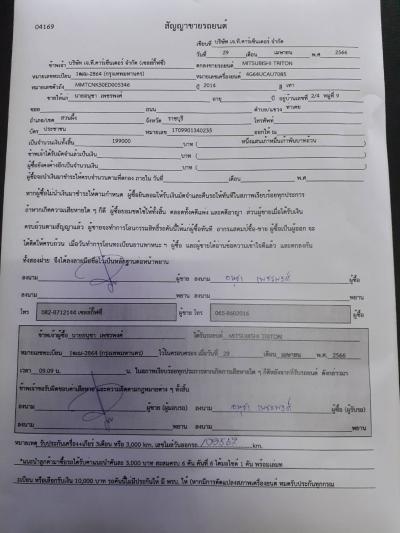 04169 สัญญาขายรถยนต์
เขียนที่ บริษัท เจ.ที.คาร์เซ็นเตอร์ จำกัด
วันที่ 29 เดือน เมษายน พ.ศ. 2566
ข้าพเจ้า บริษัท เจ.ที.คาร์เซ็นเตอร์ จำกัด (เซลล์กิ๊ฟซี่) ตกลงขายรถยนต์ MITSUBISHI TRITON
หมายเลขทะเบียน 1ฒม-2864 (กรุงเทพมหานคร) หมายเลขเครื่องยนต์ 4G64UCAU7085
หมายเลขตัวถัง MMTCNKS30ED005346 ปี 2014 สี เทา
ขายให้แก่ นายอนุชา เพชรพงศ์ อายุ ปี อยู่บ้านเลขที่ 2/4 หมู่ที่ 9
ซอย ถนน ตำบล/แขวง ท่าเคย
อำเภอ/เขต สวนผึ้ง จังหวัด ราชบุรี โทรศัพท์
บัตร ประชาชน หมายเลข 1709901340235 ออกให้ ณ
เป็นจำนวนเงินทั้งสิ้น 199000 บาท ( หนึ่งแสนเก้าหมื่นเก้าพันบาทถ้วน )
ข้าพเจ้าได้รับมัดจำแล้วเป็นเงิน บาท ( )
ผู้ซื้อยังคงค้างอีกเป็นจำนวนเงิน บาท ( )
ผู้ซื้อจะนำเงินมาชำระให้ครบจำนวนตามที่ตกลง ภายใน วันที่ เดือน พ.ศ.
หากผู้ซื้อไม่นำเงินมาชำระให้ตามกำหนด ผู้ซื้อยินยอมให้ริบเงินมัดจำและคืนรถให้ทันทีในสภาพเรียบร้อยทุกประการ
ถ้าหากเกิดความเสียหายใด ๆ ก็ดี ผู้ซื้อยอมชดใช้ให้ทั้งสิ้น ตลอดทั้งคดีแพ่ง และคดีอาญา ส่วนผู้ขายเมื่อได้รับเงิน
ครบถ้วนตามสัญญาแล้ว ผู้ขายจะทำการโอนกรรมสิทธิ์รถคันนี้ให้แก่ผู้ซื้อทันที อากรแสตมป์ซื้อ-ขาย ผู้ซื้อเป็นผู้ออก จะ
ได้คิดให้ครบถ้วน เมื่อวันทำการโอนทะเบียนยานพาหนะ ฯ ผู้ซื้อ และผู้ขายได้อ่านข้อความเข้าใจดีแล้ว และตกลงกัน
ทั้งสองฝ่าย จึงได้ลงลายมือชื่อไว้เป็นหลักฐานต่อหน้าพยาน
ลงนาม ผู้ขาย ลงนาม อนุชา เพชรพงศ์ ผู้ซื้อ
ลงนาม พยาน ลงนาม พยาน
โทร 082-8712144 เซลล์กิ๊ฟซี่ ผู้ขาย โทร 065-8602016 ผู้ซื้อ
ข้าพเจ้าผู้ซื้อ นายอนุชา เพชรพงศ์ ได้รับรถยนต์ MITSUBISHI TRITON
หมายเลขทะเบียน 1ฒม-2864 (กรุงเทพมหานคร) ไว้ในครอบครอง เมื่อวันที่ 29 เดือน เมษายน พ.ศ. 2566
เวลา 09.09 น. น. ในสภาพเรียบร้อยทุกประการหากเกิดการเสียหายใด ๆ ก็ดีหลังจากที่รับรถยนต์ ดังกล่าวมา
ข้าพเจ้าขอรับผิดชอบค่าเสียหายและความผิดตามกฎหมายต่าง ๆ ทั้งสิ้น
ลงนาม ผู้ขาย (ผู้มอบรถ) ลงนาม อนุชา เพชรพงศ์ ผู้ซื้อ (ผู้รับรถ)
ลงนาม พยาน ลงนาม พยาน
หมายเหตุ รับประกันเครื่อง+เกียร์ 3เดือน หรือ 3,000 km. เลขไมล์วันออกรถ 193567 km.
*แนะนำลูกค้ามาซื้อรถได้รับค่าแนะนำคันละ 3,000 บาท สะสมครบ 6 คัน คันที่ 6 ได้มอไซค์ 1 คัน พร้อมเล่มท
ะเบียน หรือเลือกรับเงิน 10,000 บาท รถคันนี้ไม่มีประกันให้ มี พรบ. ให้ (หากมีการดัดแปลงสภาพเครื่องยนต์ หมดรับประกันทุกกรณ